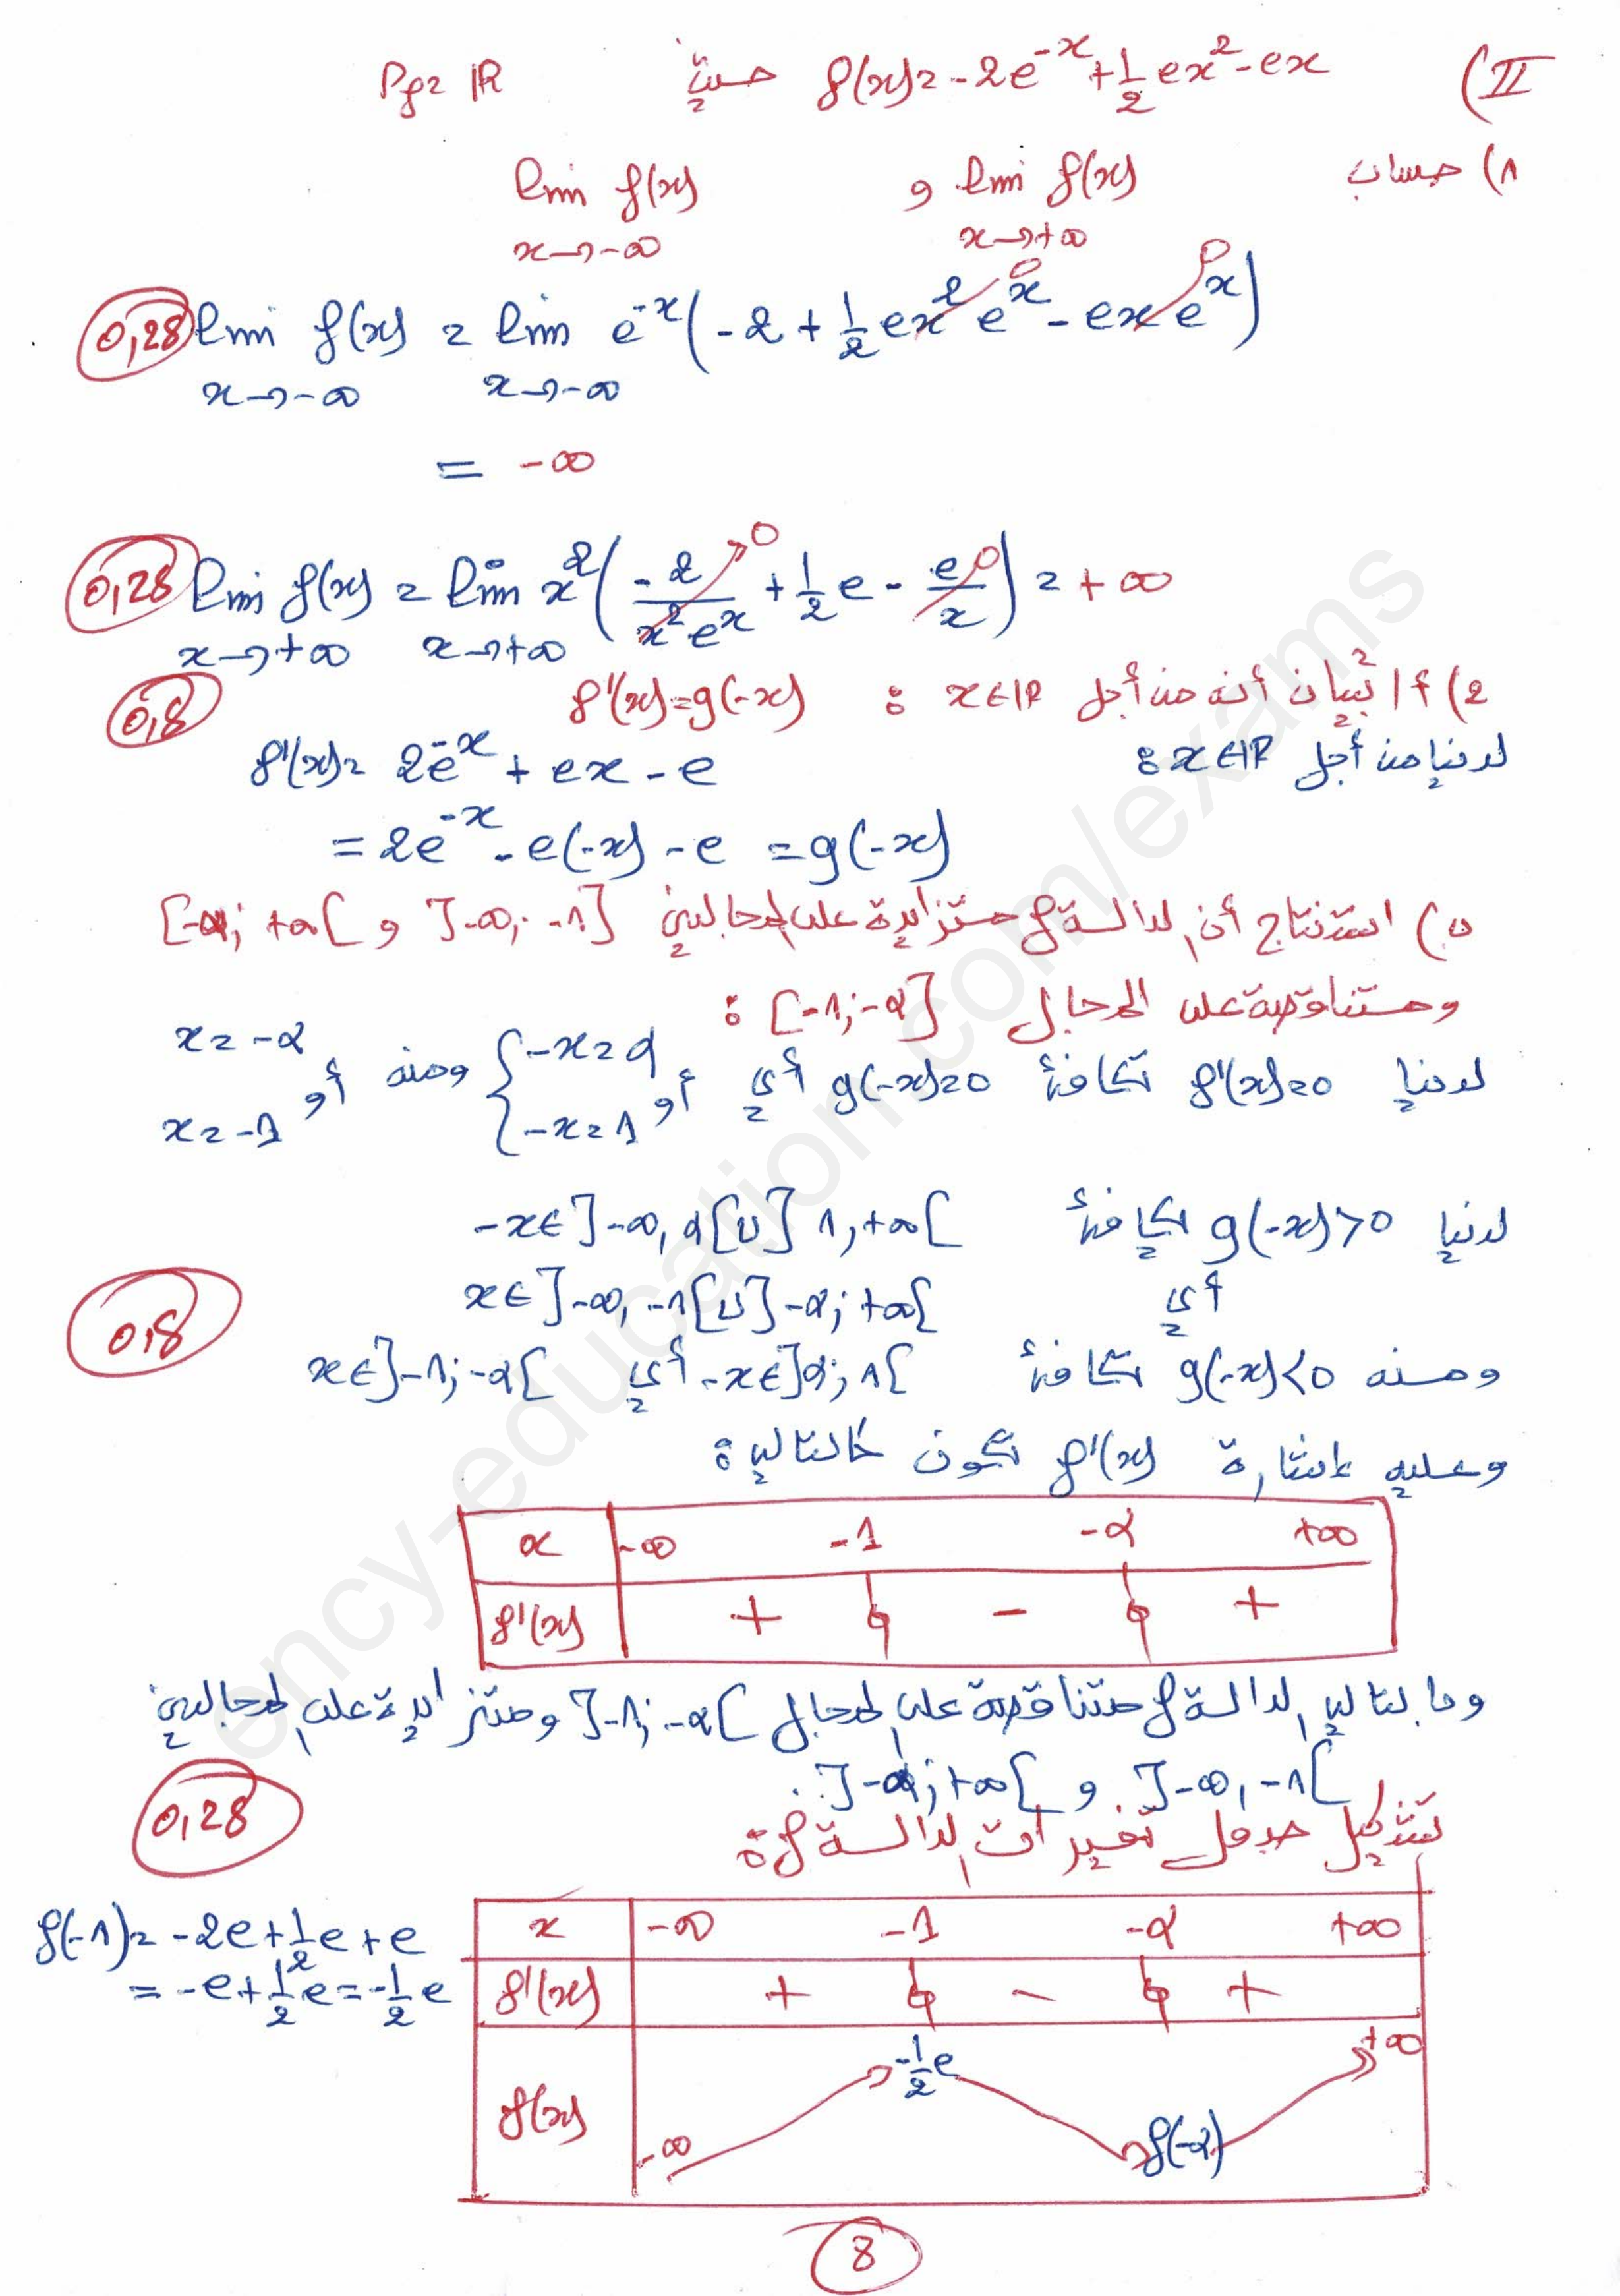 II) f(x) = -2e^{-x} + \frac{1}{2}ex^2 - ex حيث D_f = ℝ
1) حساب \lim_{x→+∞} f(x) و \lim_{x→-∞} f(x)
0,25 \lim_{x→-∞} f(x) = \lim_{x→-∞} e^{-x}(-2 + \frac{1}{2}ex^2e^x - exe^x)
0 0
= -∞
0,25 \lim_{x→+∞} f(x) = \lim_{x→+∞} x^2(\frac{-2}{x^2e^x} + \frac{1}{2}e - \frac{e}{x}) = +∞
0 0
2) أ) تبيان أنه من أجل x∈ℝ : f'(x) = g(-x)
0,5
لدينا من أجل x∈ℝ :
f'(x) = 2e^{-x} + ex - e
= 2e^{-x} - e(-x) - e = g(-x)
ب) استنتاج أن الدالة f متزايدة على المجالين ]-∞; -1] و [-α; +∞[
ومتناقصة على المجال [-1; -α] :
لدينا f'(x)=0 تكافئ g(-x)=0 أي { -x=α أو -x=1 ومنه x=-α أو x=-1
لدينا g(-x)>0 تكافئ -x∈]-∞, α[∪]1, +∞[
أي x∈]-∞, -1[∪]-α; +∞[
0,5
ومنه g(-x)<0 تكافئ -x∈]α; 1[ أي x∈]-1; -α[
وعليه إشارة f'(x) تكون كالتالي :
x -∞ -1 -α +∞
f'(x) + 0 - 0 +
وبالتالي الدالة f متناقصة على المجال ]-1; -α[ ومتزايدة على المجالين
]-∞, -1[ و ]-α; +∞[ .
0,25
تشكيل جدول تغيرات الدالة f :
f(-1) = -2e + \frac{1}{2}e + e
= -e + \frac{1}{2}e = -\frac{1}{2}e
x -∞ -1 -α +∞
f'(x) + 0 - 0 +
f(x) -∞ -\frac{1}{2}e f(-α) +∞
8
ency-education.com/exams